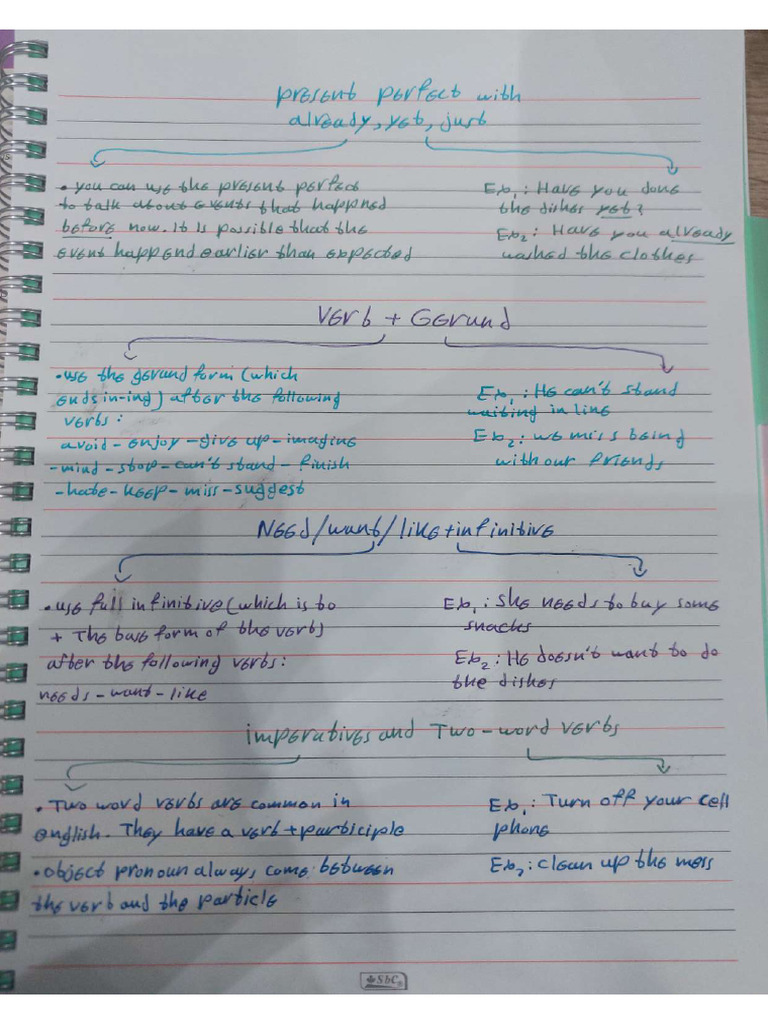 present perfect with
already, yet, just
• you can use the present perfect
to talk about events that happned
before now. It is possible that the
event happend earlier than expected
Ex1: Have you done
the dishes yet?
Ex2: Have you already
washed the clothes
Verb + Gerund
• use the gerund form (which
ends in-ing) after the following
verbs:
avoid - enjoy - give up - imagine
- mind - stop - can't stand - finish
- hate - keep - miss - suggest
Ex1: He can't stand
waiting in line
Ex2: we miss being
with our friends
Need/want/like+infinitive
• use full infinitive (which is to
+ The base form of the verb)
after the following verbs:
needs - want - like
Ex1: She needs to buy some
snacks
Ex2: He doesn't want to do
the dishes
imperatives and Two-word verbs
• Two word verbs are common in
english. They have a verb + participle
• object pronoun always come between
the verb and the particle
Ex1: Turn off your cell
phone
Ex2: clean up the mess
SbC